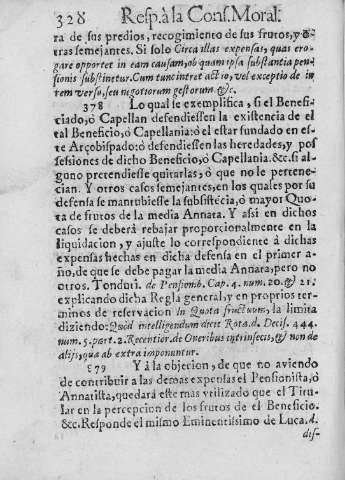 328 Resp. à la Cons. Moral.
ra de sus predios, recogimiento de sus frutos, y o-
tras semejantes. Si solo Circa illas expensas, quas ero-
gare opportet in eam causam, ob quam ipsa substantia pen-
sionis substinetur. Cum tunc intret actio, vel exceptio de in
rem verso, seu negotiorum gestorum &c.
378 Lo qual se exemplifica, si el Benefi-
ciado, ó Capellan defendiessen la existencia de el
tal Beneficio, ó Capellania: ó el estar fundado en es-
te Arçobispado: ó defendiessen las heredades, y pos
sesiones de dicho Beneficio, ó Capellania. &c. si al-
guno pretendiesse quitarlas, ó que no le pertene-
cian. Y otros casos semejantes, en los quales por su
defensa se mantubiesse la subsistẽcia, ó mayor Quo-
ta de frutos de la media Annata. Y assi en dichos
casos se deberá rebajar proporcionalmente en la
liquidacion, y ajuste lo correspondiente á dichas
expensas hechas en dicha defensa en el primer a-
ño, de que se debe pagar la media Annata, pero no
otros. Tonduti. de Pensionib. Cap. 4. num. 20. & 21.
explicando dicha Regla general, y en proprios ter-
minos de reservacion In Quota fructuum, la limita
diziendo: Quod intelligendum dicit Rota. d. Decis. 444.
num. 5. part. 2. Recentior. de Oneribus intrinsecis, & non de
alijs, quæ ab extra imponuntur.
379 Y á la objecion, de que no aviendo
de contribuir a las demas expensas el Pensionista, ó
Annatista, quedará este mas vtilizado que el Titu-
lar en la percepcion de los frutos de el Beneficio.
&c. Responde el mismo Eminentissimo de Luca. d.
dis-